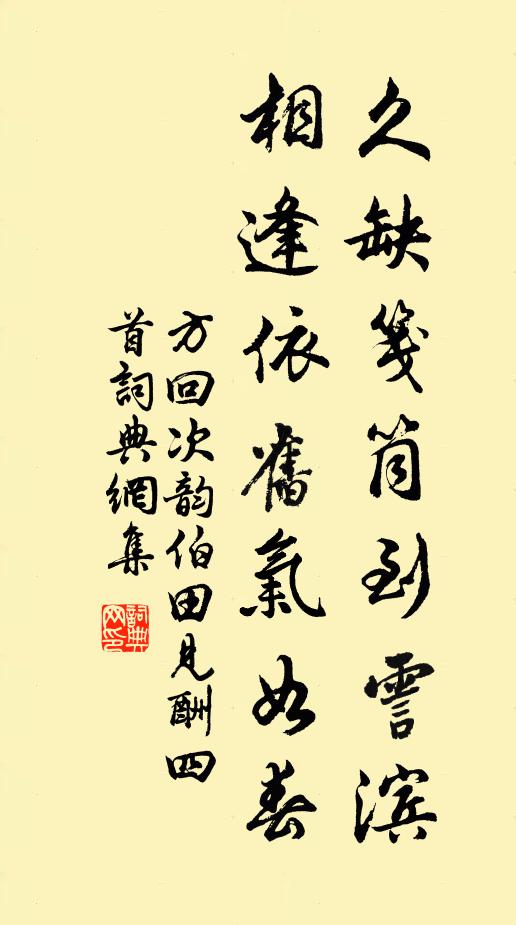 久缺箋筒到霅滨
相逢依舊氣如春
方回次韵伯田見酬四
首詞典網集
詞典网印